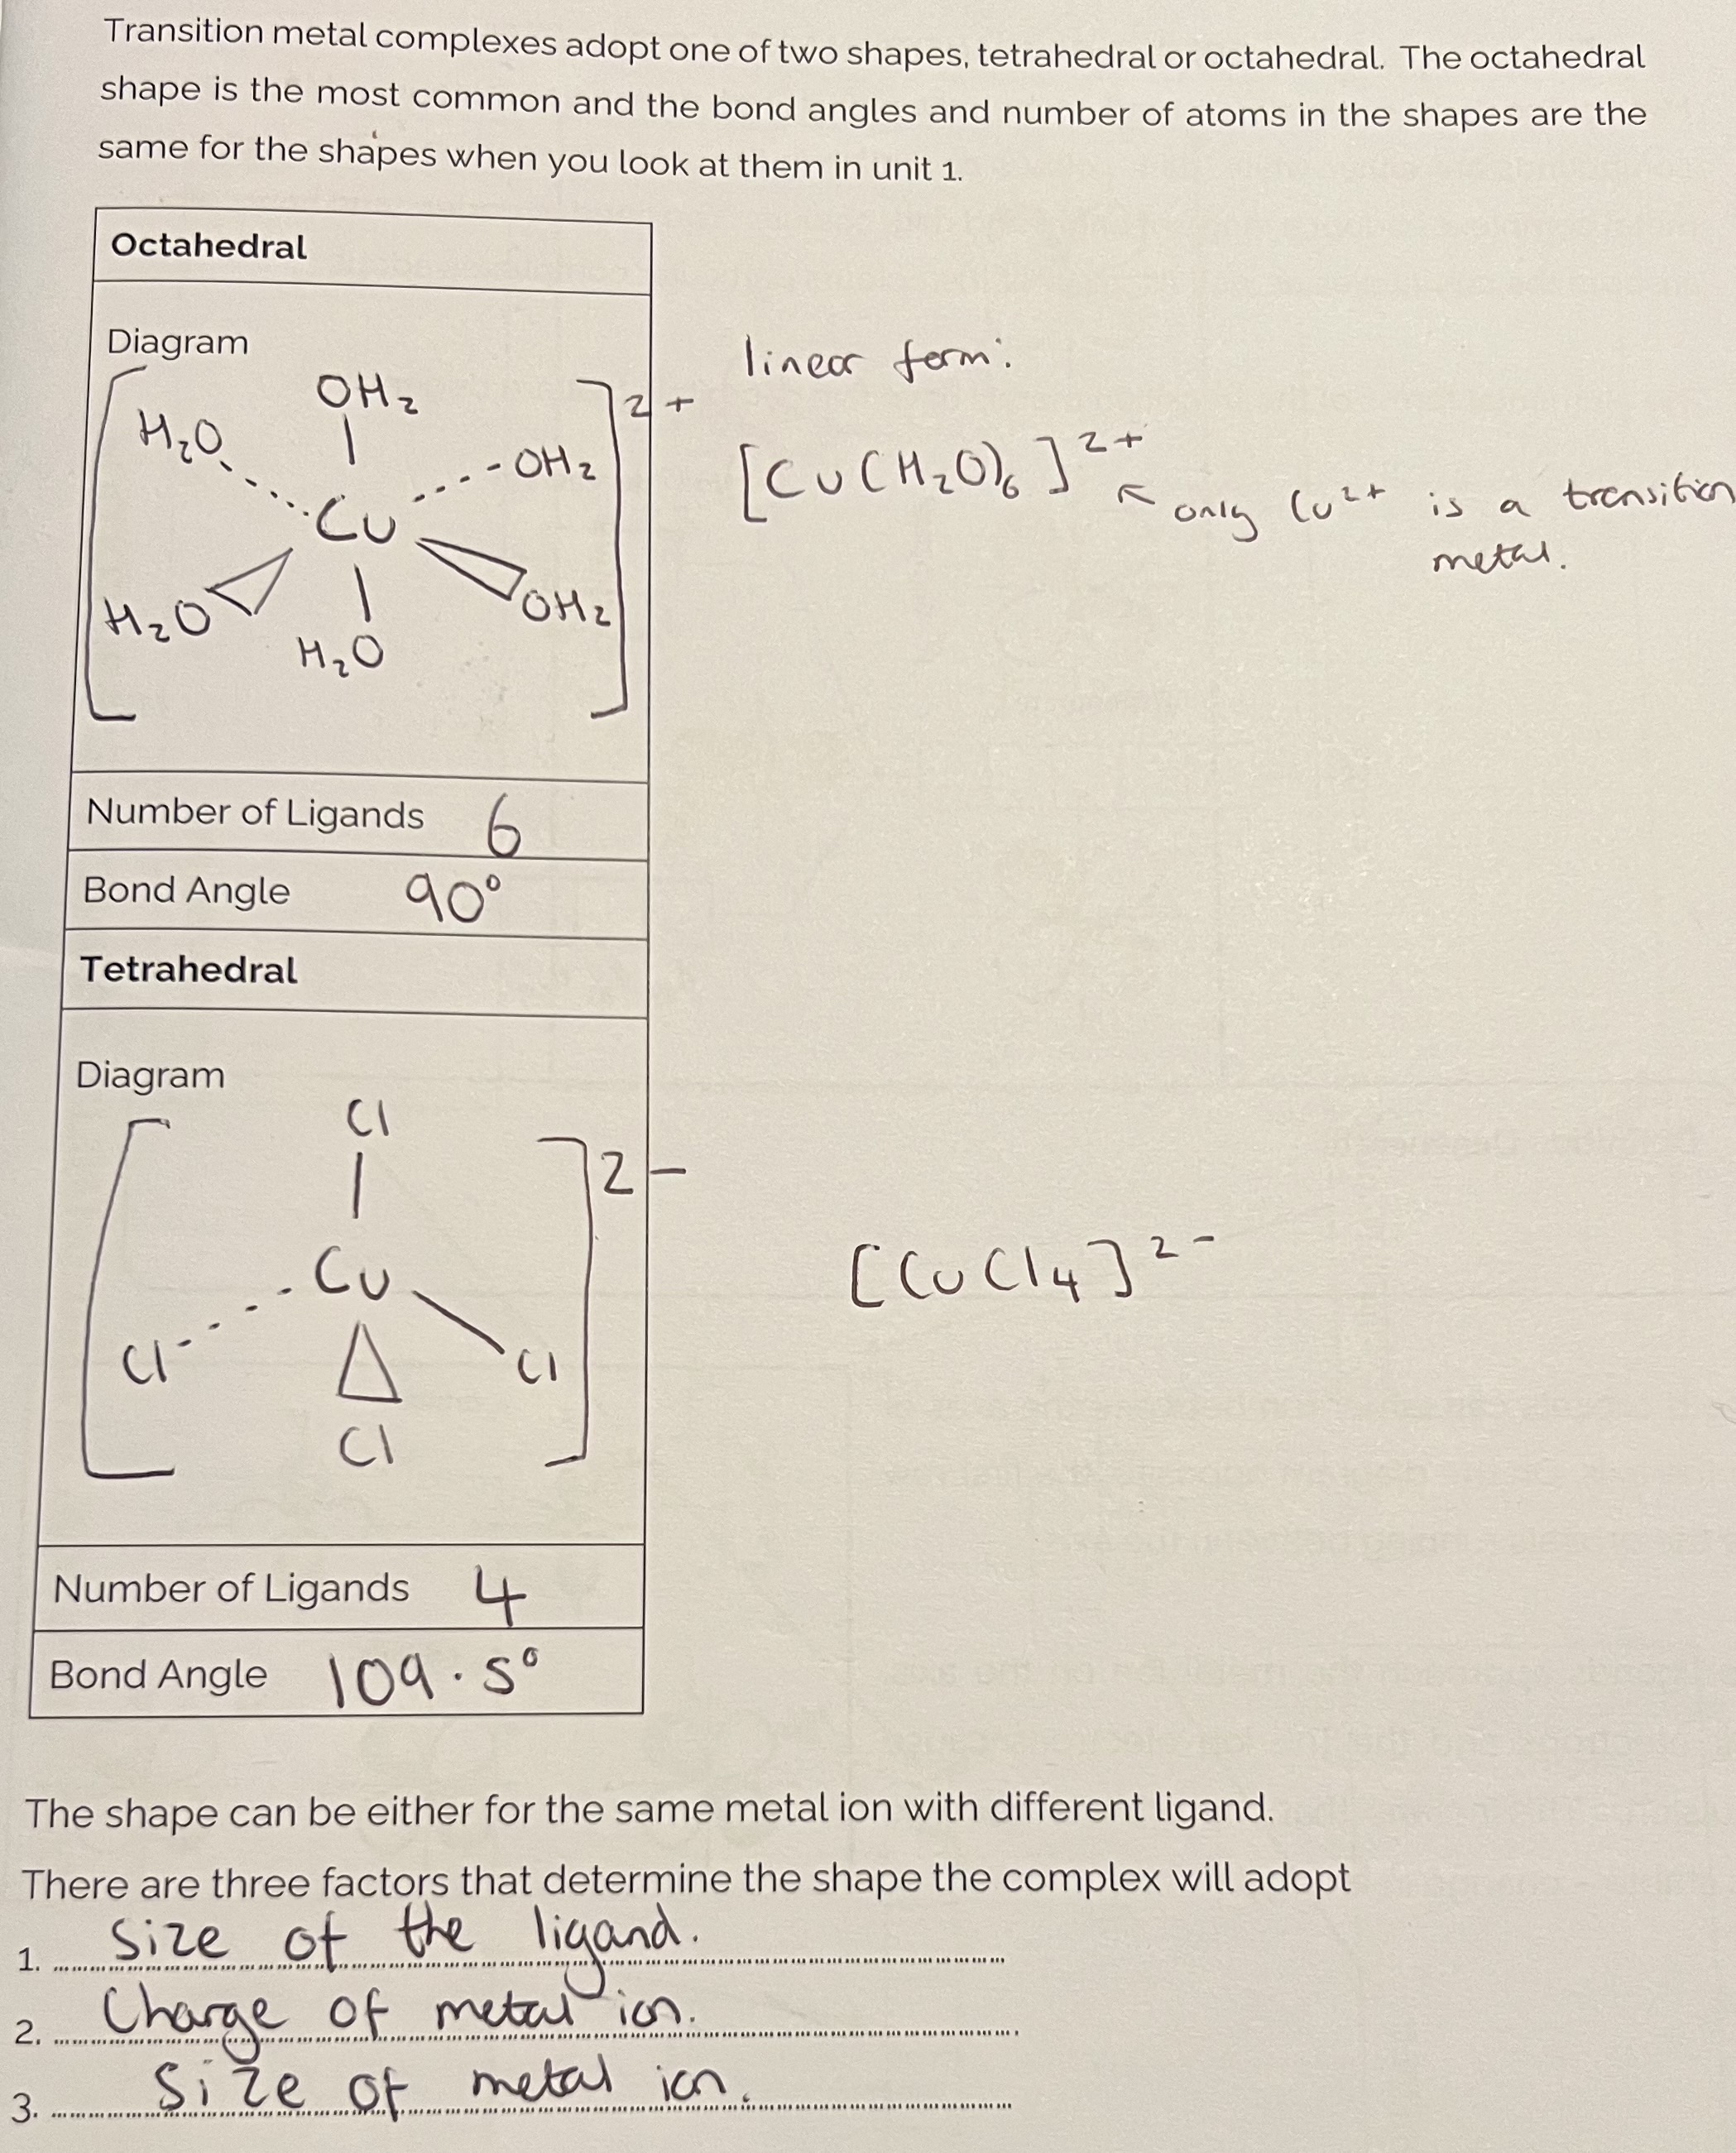 Transition metal complexes adopt one of two shapes, tetrahedral or octahedral. The octahedral
shape is the most common and the bond angles and number of atoms in the shapes are the
same for the shapes when you look at them in unit 1.
Octahedral
Diagram
OH₂
H₂O
OH₂
2+
Cu
H₂O
OH₂
H₂O
linear form:
[Cu(H₂O)₆]²⁺
↖ only Cu²⁺ is a transition
metal.
Number of Ligands 6
Bond Angle 90°
Tetrahedral
Diagram
Cl
2-
Cu
Cl
Cl
Cl
[CuCl₄]²⁻
Number of Ligands 4
Bond Angle 109.5°
The shape can be either for the same metal ion with different ligand.
There are three factors that determine the shape the complex will adopt
1. Size of the ligand.
2. Charge of metal ion.
3. Size of metal ion.